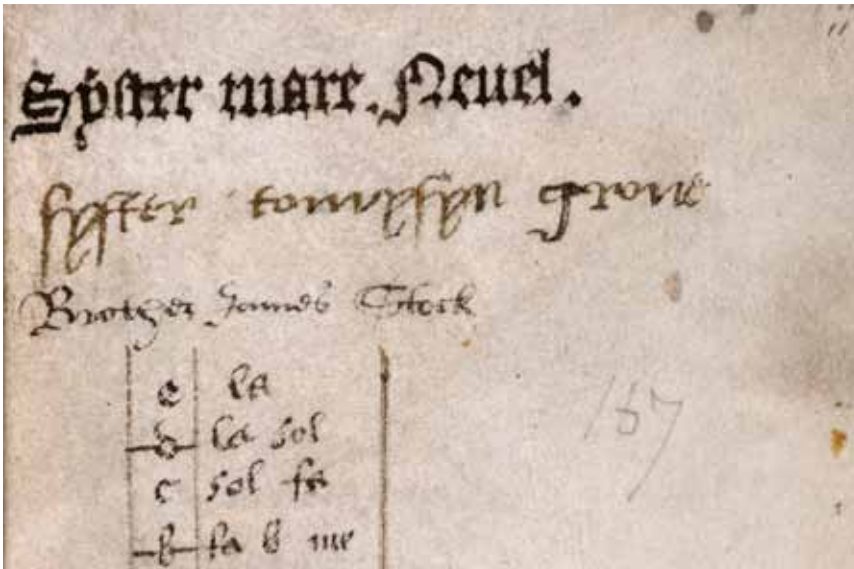 Syster mare. Neuel.
syster tomysyn grove
Brother James Stock
e la
d la sol
c sol fa
b fa b me
167